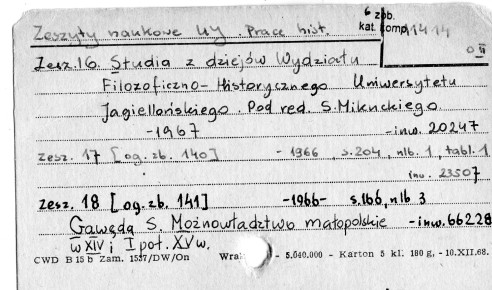 6 zob.
Zeszyty naukowe UJ. Prace hist. kat. komp. 11414
0 II
Zesz. 16. Studia z dziejów Wydziału
Filozoficzno-Historycznego Uniwersytetu
Jagiellońskiego. Pod red. S. Mikuckiego.
-1967 -inw. 20247
Zesz. 17 [og. zb. 140] - 1966, s. 204, nlb. 1, tabl. 1
inw. 23507
Zesz. 18 [og. zb. 141] -1966- s. 166, nlb 3
Gawęda S. Możnowładztwo małopolskie -inw. 66228
w XIV i I poł. XV w.
CWD B 15 b Zam. 1537/DW/On - 5.040.000 - Karton 5 kl. 180 g, -10.XII.68.